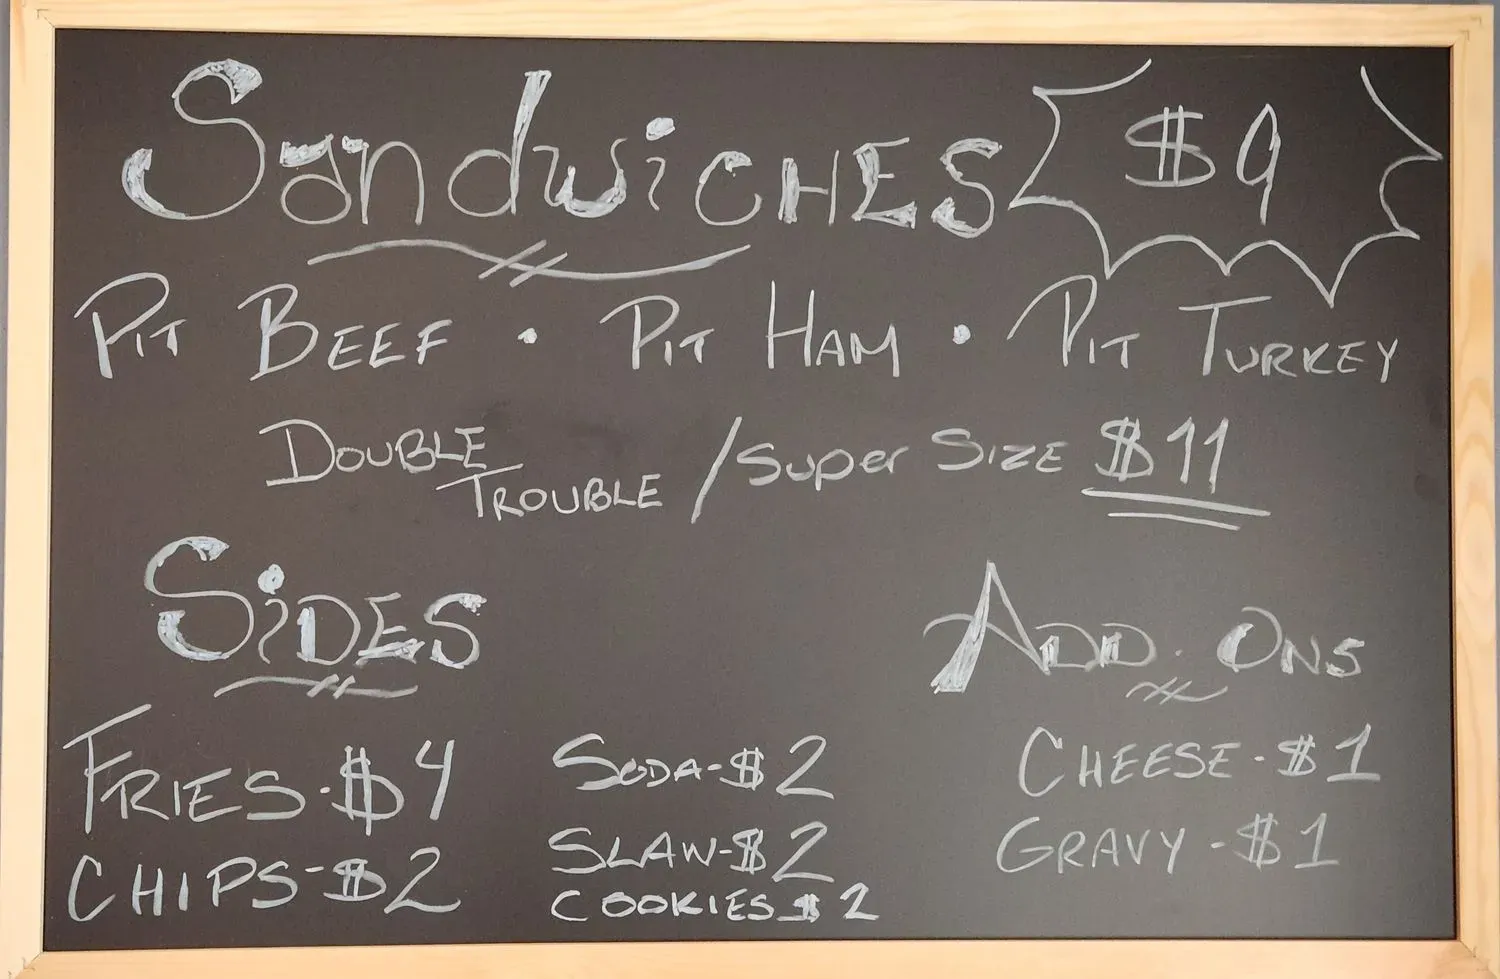 Sandwiches $9
Pit Beef · Pit Ham · Pit Turkey
Double Trouble / Super Size $11
Sides
Add-Ons
Fries-$4
Chips-$2
Soda-$2
Slaw-$2
Cookies $2
Cheese-$1
Gravy-$1